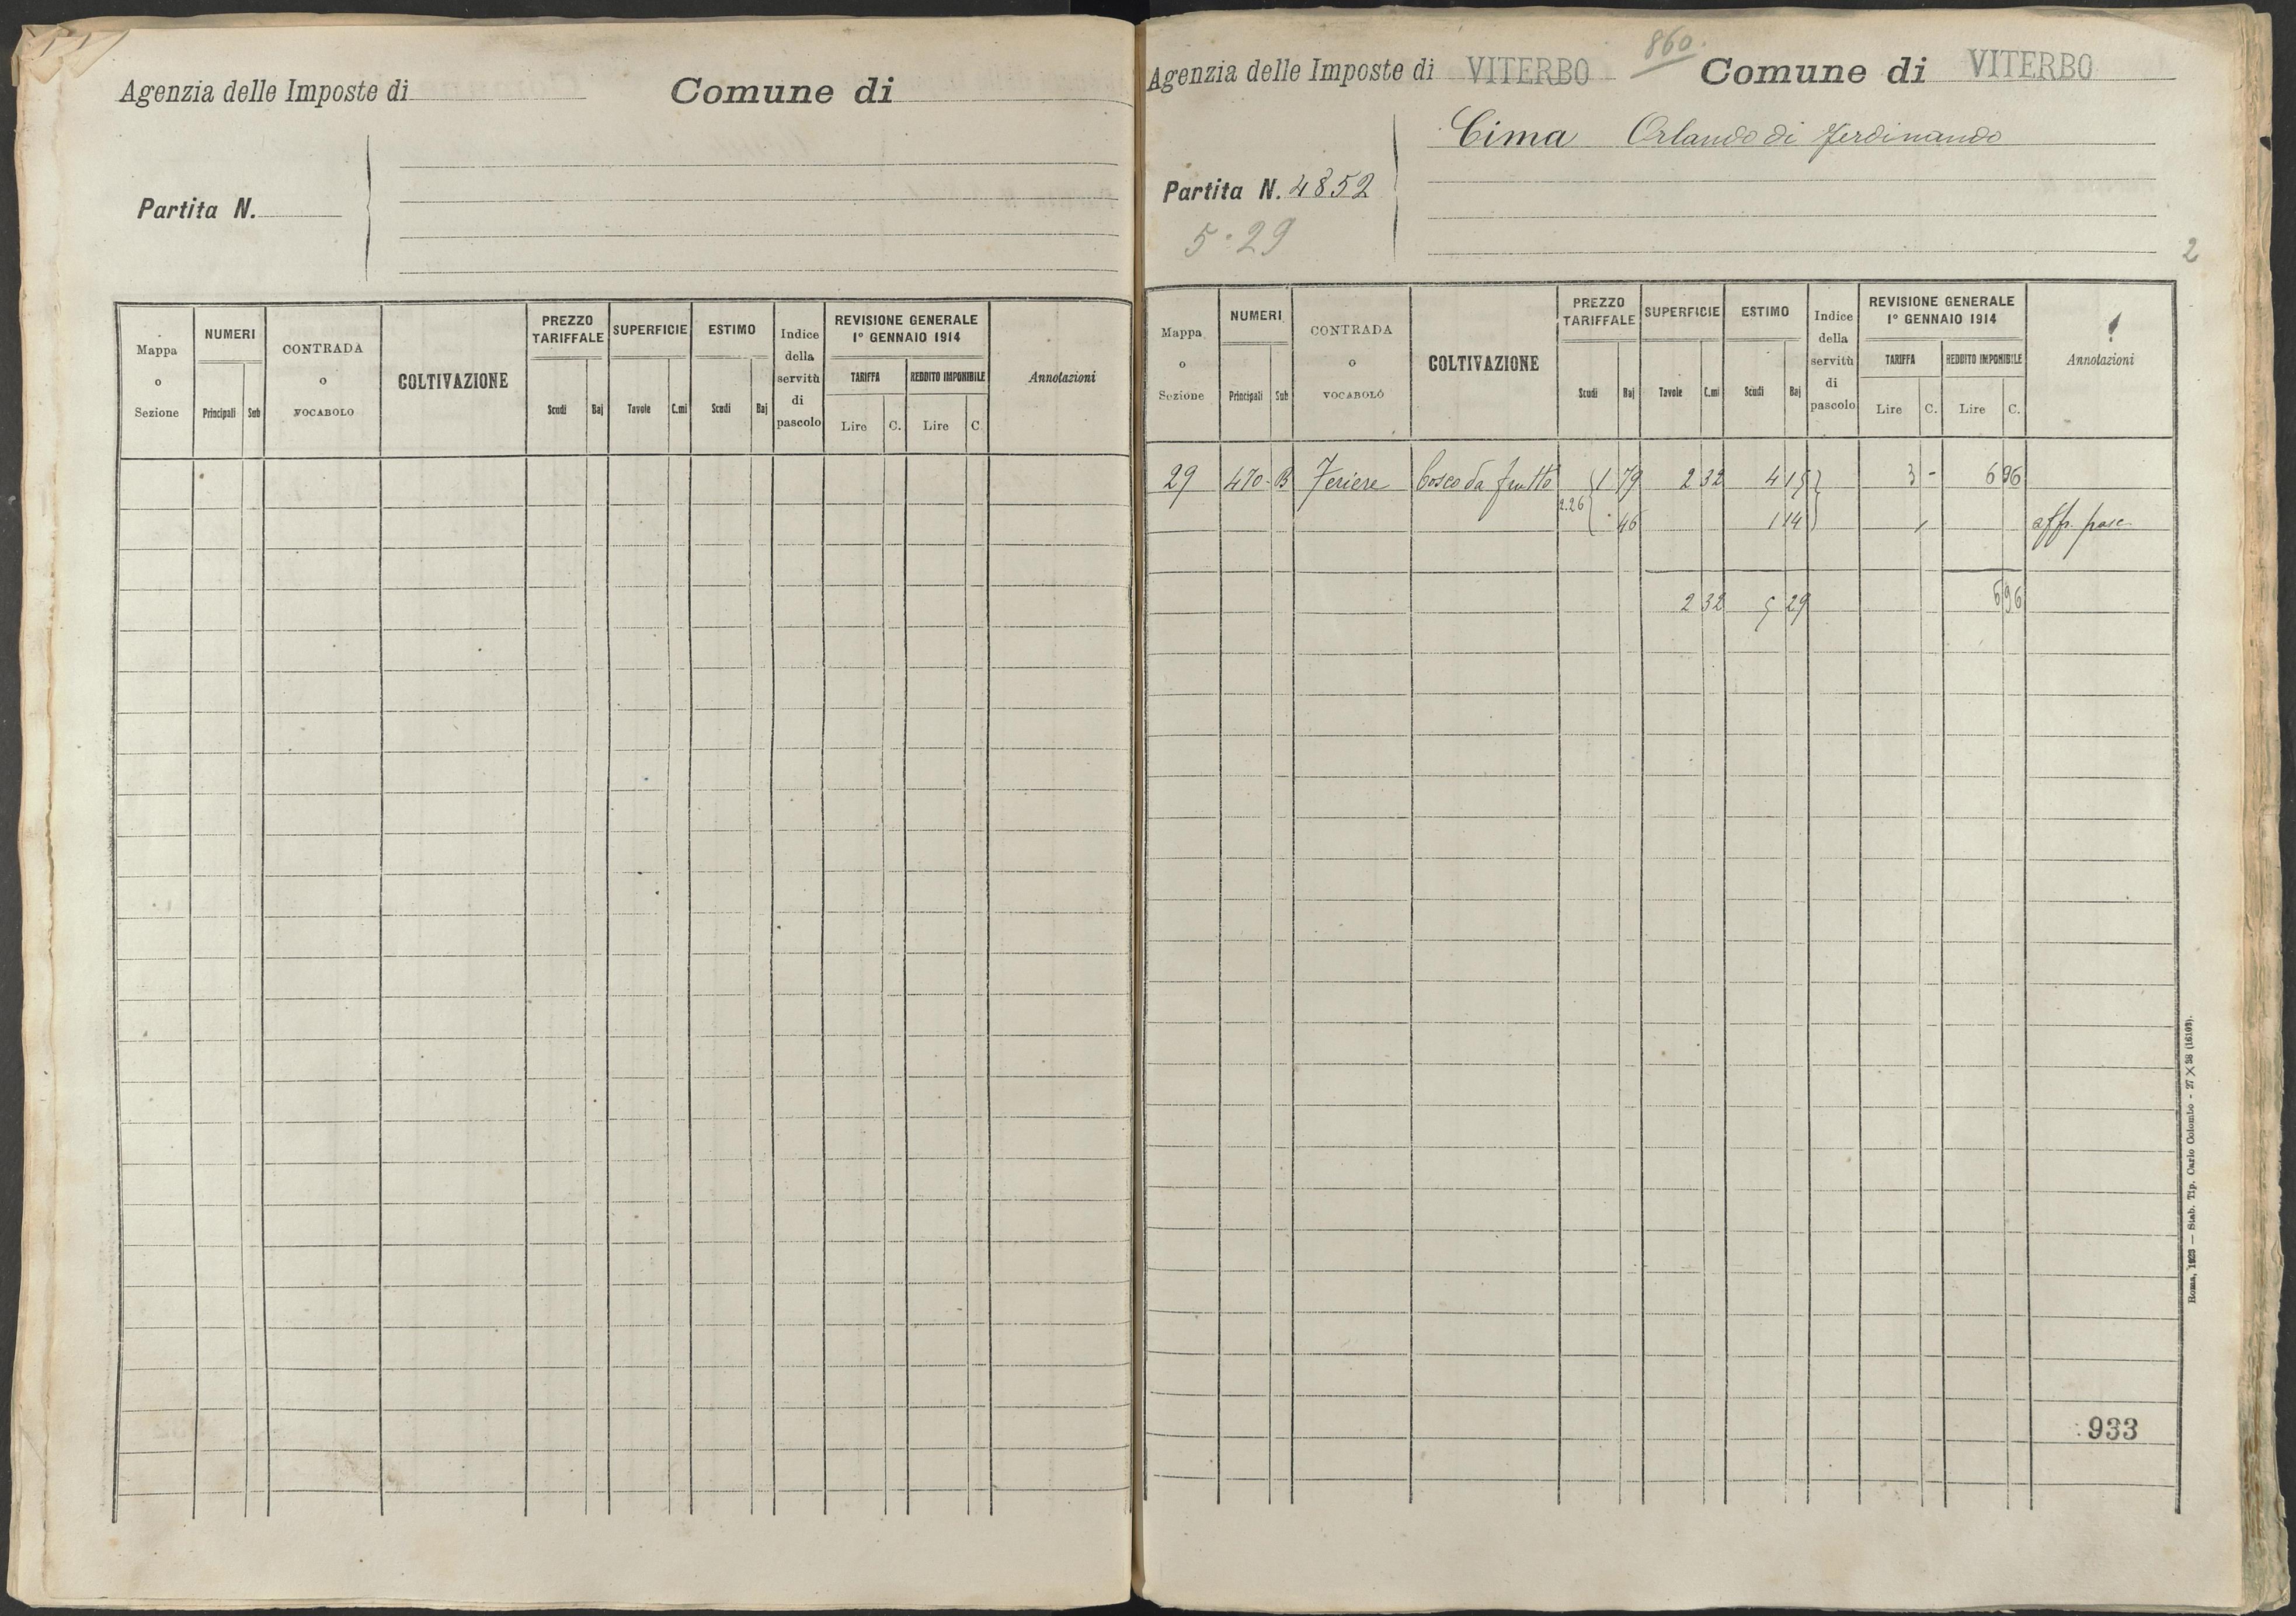 Agenzia delle Imposte di
Comune di
Partita N.
Mappa o Sezione
NUMERI
Principali Sub
CONTRADA o VOCABOLO
COLTIVAZIONE
PREZZO TARIFFALE
Scudi Baj
SUPERFICIE
Tavole C.mi
ESTIMO
Scudi Baj
Indice della servitù di pascolo
REVISIONE GENERALE
1º GENNAIO 1914
TARIFFA
Lire C.
REDDITO IMPONIBILE
Lire C
Annotazioni
860.
Agenzia delle Imposte di VITERBO Comune di VITERBO
Cima Orlando di Ferdinando
Partita N. 4852
5.29
2
Mappa o Sezione
NUMERI
Principali Sub
CONTRADA o VOCABOLO
COLTIVAZIONE
PREZZO TARIFFALE
Scudi Baj
SUPERFICIE
Tavole C.mi
ESTIMO
Scudi Baj
Indice della servitù di pascolo
REVISIONE GENERALE
1º GENNAIO 1914
TARIFFA
Lire C.
REDDITO IMPONIBILE
Lire C.
Annotazioni
29 470 B Feriere bosco da frutto 1 79 2 32 4 15 3 - 6 96
2.26 46 1 14 aff. pasc
2 32 5 29 6 96
933
Roma, 1923 — Stab. Tip. Carlo Colombo - 27 X 38 (16103).